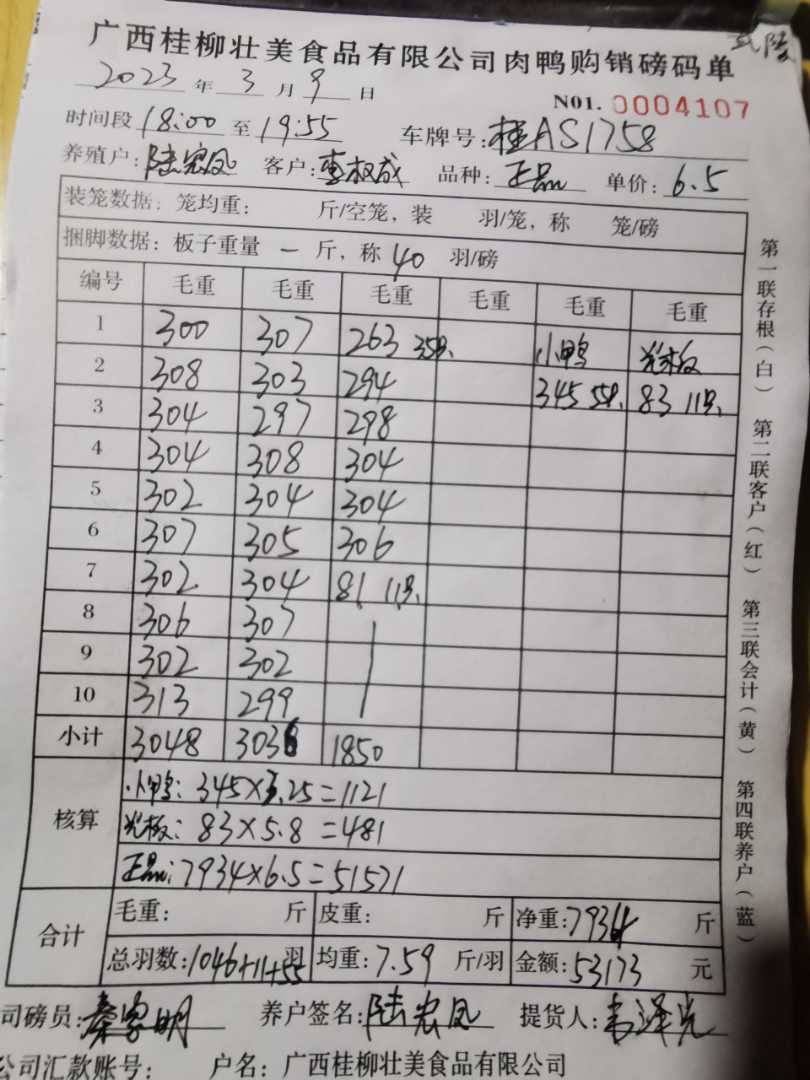 武陵
广西桂柳壮美食品有限公司肉鸭购销磅码单
2023 年 3 月 9 日
N01. 0004107
时间段 18:00 至 19:55 车牌号: 桂AS1758
养殖户: 陆宏凤 客户: 李权成 品种: 正品 单价: 6.5
装笼数据: 笼均重: 斤/空笼, 装 羽/笼, 称 笼/磅
捆脚数据: 板子重量 一 斤, 称 40 羽/磅
编号 毛重 毛重 毛重 毛重 毛重 毛重
1 300 307 263 35只. 小鸭 光板
2 308 303 294 345 55只. 83 11只.
3 304 297 298
4 304 308 304
5 302 304 304
6 307 305 306
7 302 304 81 11只.
8 306 307
9 302 302
10 313 299
小计 3048 3036 1850
核算
小鸭: 345×3.25=1121
光板: 83×5.8=481
正品: 7934×6.5=51571
合计
毛重: 斤 皮重: 斤 净重: 7934 斤
总羽数: 1046+11+55 羽 均重: 7.59 斤/羽 金额: 53173 元
司磅员: 秦家明 养户签名: 陆宏凤 提货人: 韦泽光
公司汇款账号: 户名: 广西桂柳壮美食品有限公司
第一联存根(白) 第二联客户(红) 第三联会计(黄) 第四联养户(蓝)